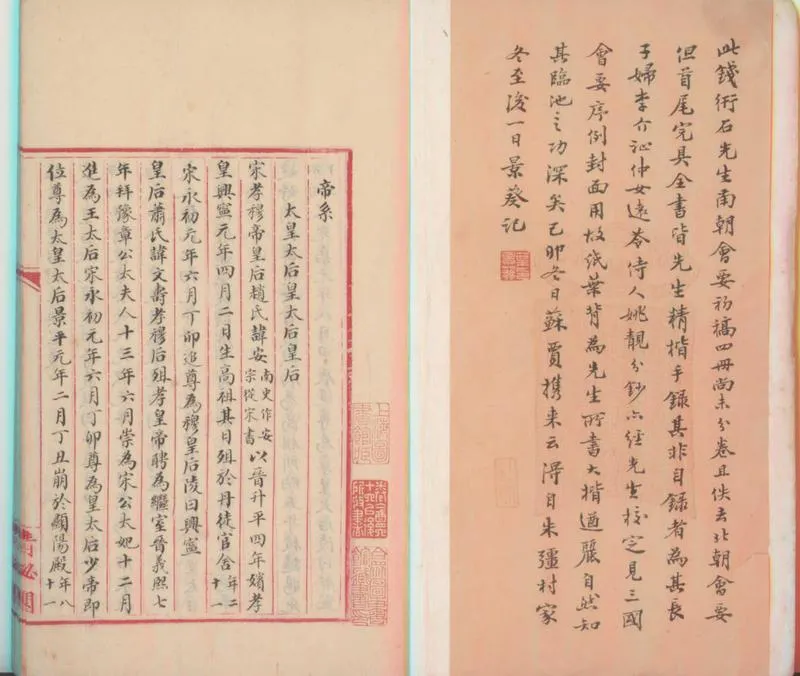 此錢衎石先生南朝會要初稿四冊尚未分卷且佚去北朝會要
但首尾完具全書皆先生精楷手録其非自録者為其長
子婦李介祉仲女遠苓侍人姚靚分鈔亦經先生校定見三國
會要序例封面用故紙葉背為先生所書大楷遒麗自然知
其臨池之功深矣己卯冬日蘇賈携来云得自朱彊村家
冬至後一日景葵记
帝系
太皇太后皇太后皇后
宋孝穆帝皇后趙氏諱安南史作安宗從宋書以晉升平四年嬪孝
皇興寧元年四月二日生高祖其日殂於丹徒官舍年二十一
宋永初元年六月丁卯追尊為穆皇后陵曰興寧
皇后蕭氏諱文壽孝穆后殂孝皇帝聘為繼室晉義熙七
年拜豫章公太夫人十三年六月崇為宋公太妃十二月
進為王太后宋永初元年六月丁卯尊為皇太后少帝即
位尊為太皇太后景平元年二月丁丑崩於顯陽殿年八十一